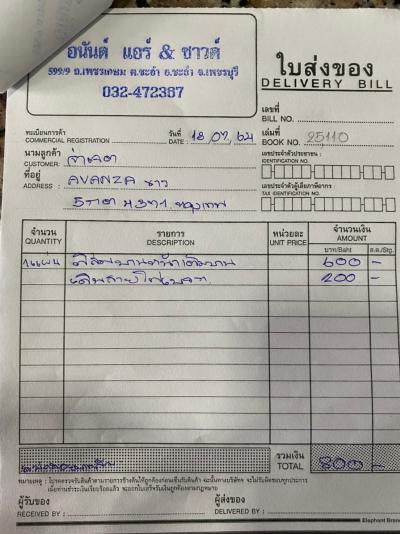 อนันต์ แอร์ & ซาวด์
599/9 ถ.เพชรเกษม ต.ชะอำ อ.ชะอำ จ.เพชรบุรี
032-472387
ใบส่งของ
DELIVERY BILL
เลขที่
BILL NO.
ทะเบียนการค้า
COMMERCIAL REGISTRATION
วันที่
DATE : 18.07.64
เล่มที่
BOOK NO. 25110
นามลูกค้า
CUSTOMER:
เลขประจำตัวประชาชน :
IDENTIFICATION NO.
ที่อยู่
ADDRESS : AVANZA ขาว
เลขประจำตัวผู้เสียภาษีอากร :
TAX IDENTIFICATION NO.
จำนวน
QUANTITY
รายการ
DESCRIPTION
หน่วยละ
UNIT PRICE
จำนวนเงิน
AMOUNT
บาท/Baht ส.ต./Stg.
600 -
200 -
รวมเงิน
TOTAL 800 -
ผู้รับของ
RECEIVED BY :
ผู้ส่งของ
DELIVERED BY :
Elephant Bran